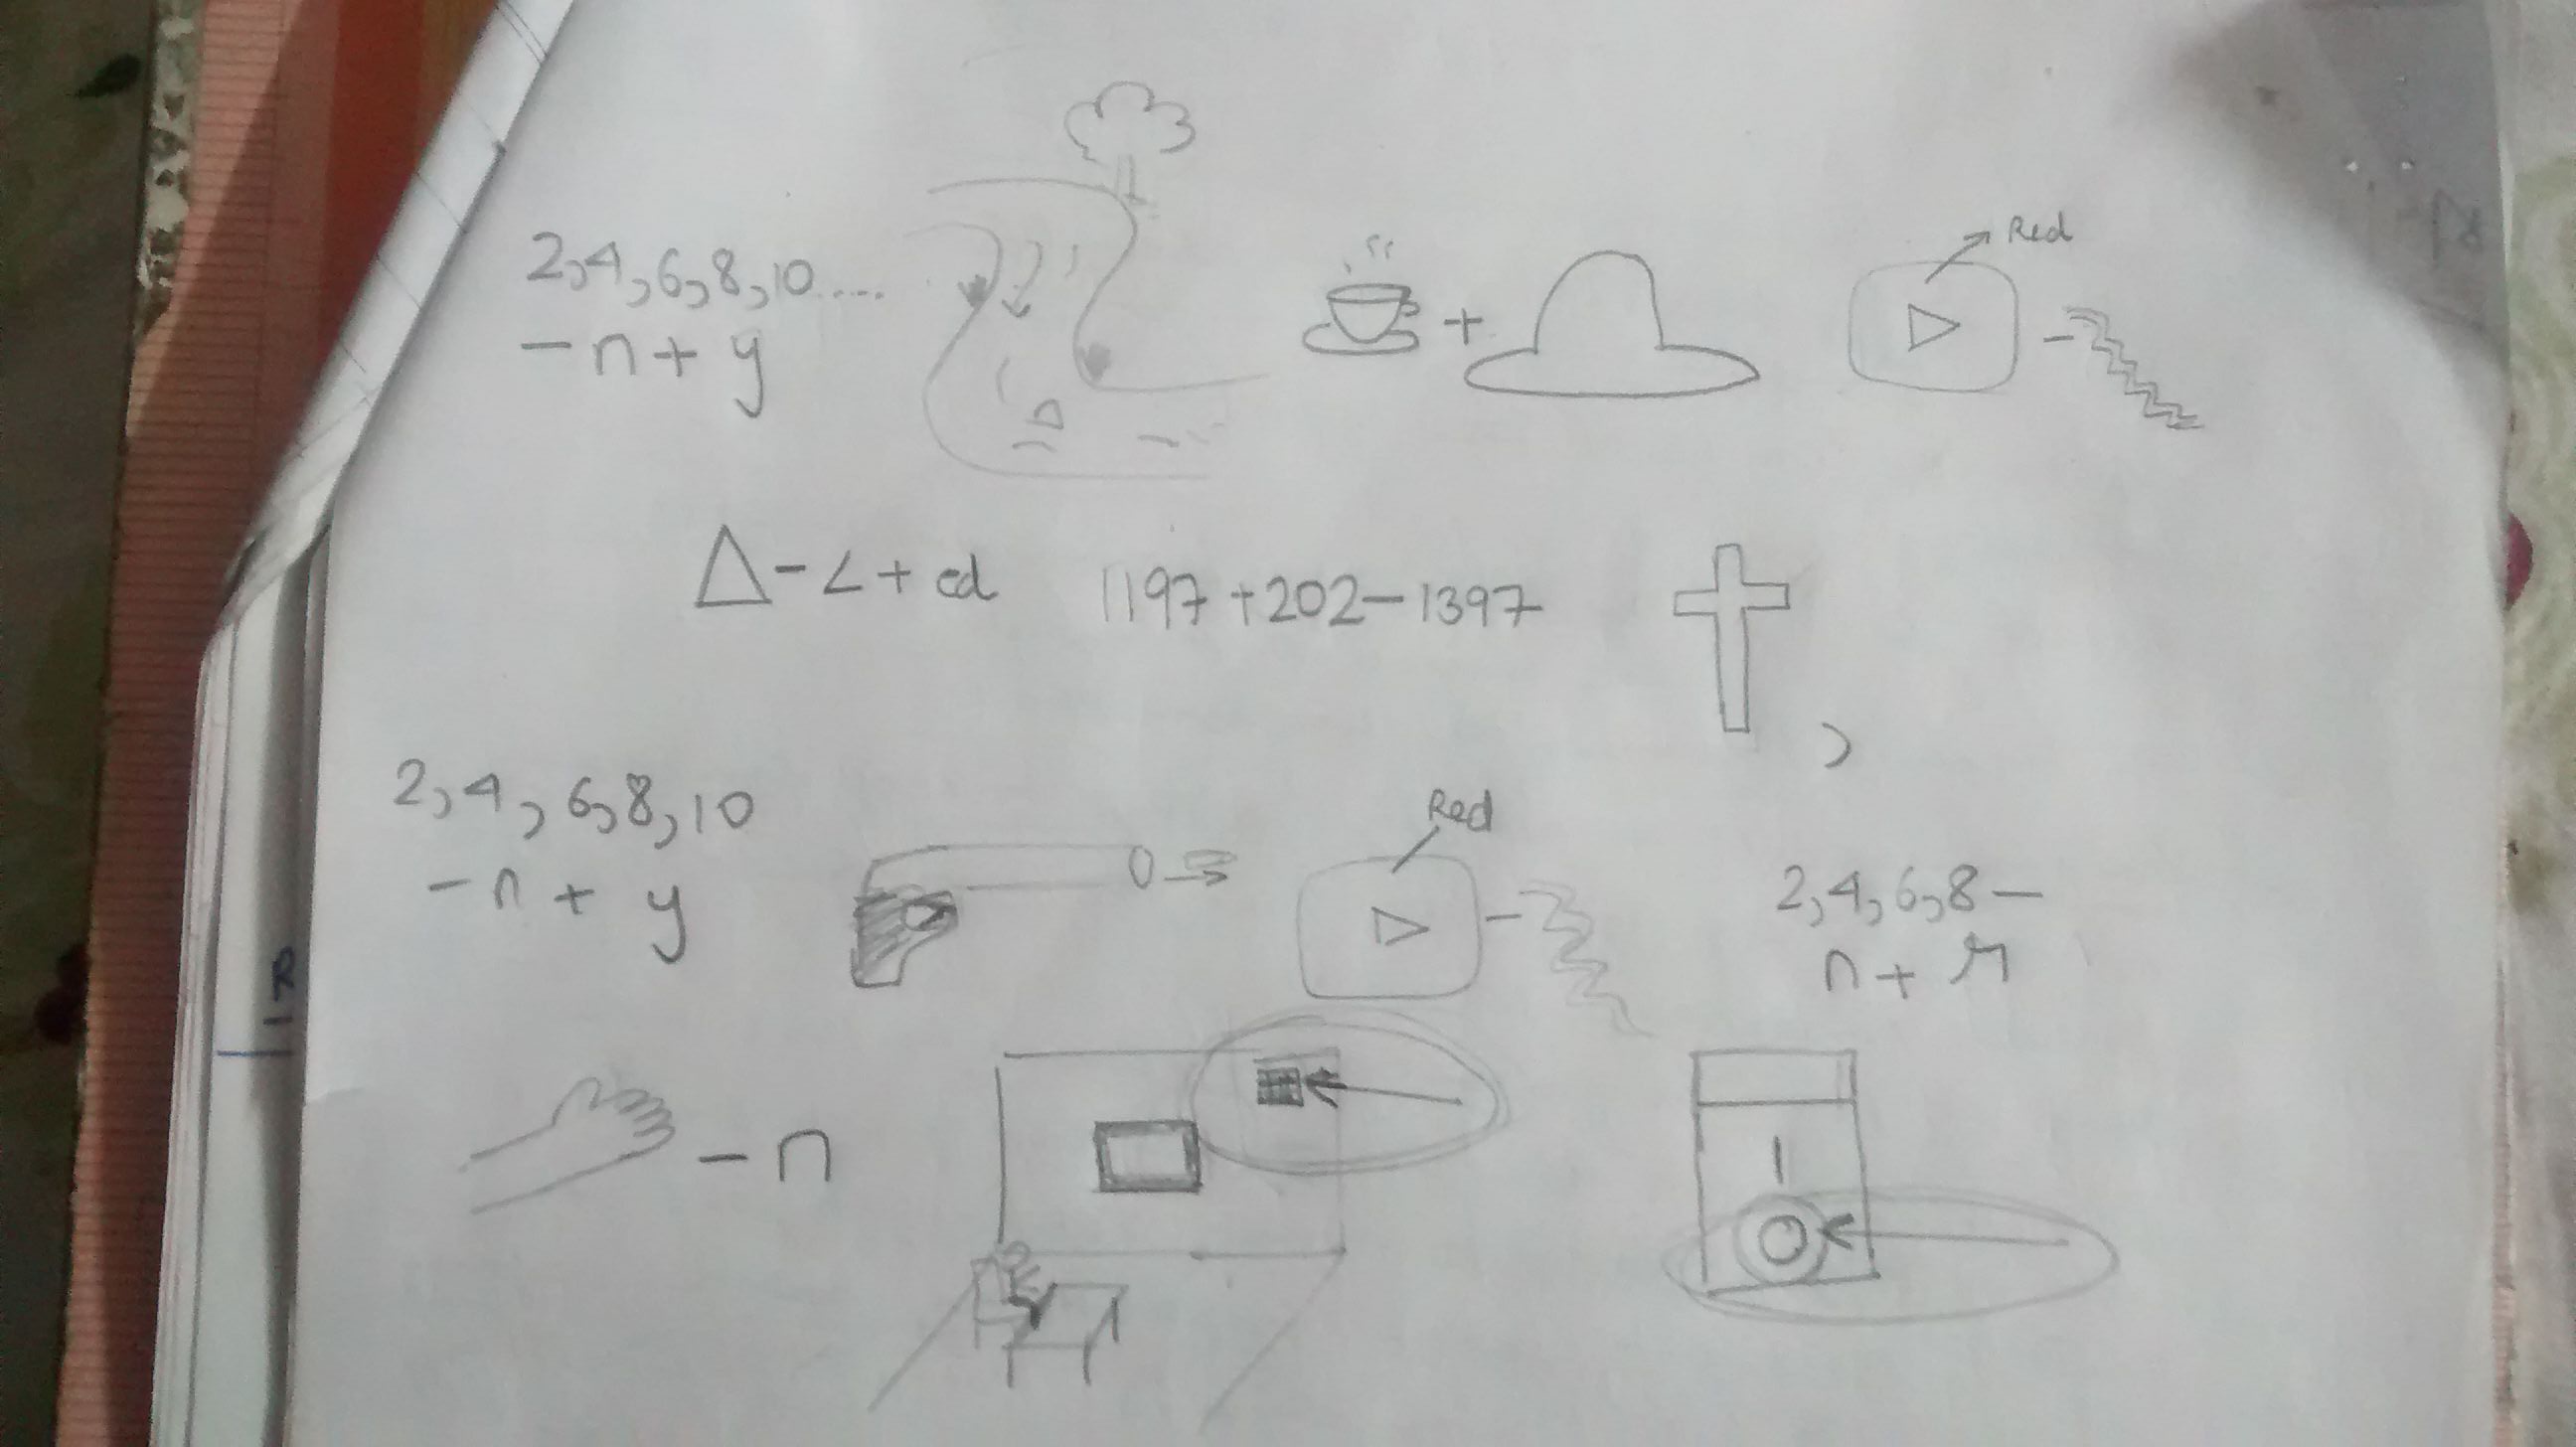 Red
2,4,6,8,10....
-n+y
+
-
Δ-∠+ed 1197+202-1397
,
2,4,6,8,10
-n+y
Red
-
2,4,6,8-
n+r
-n
I
O